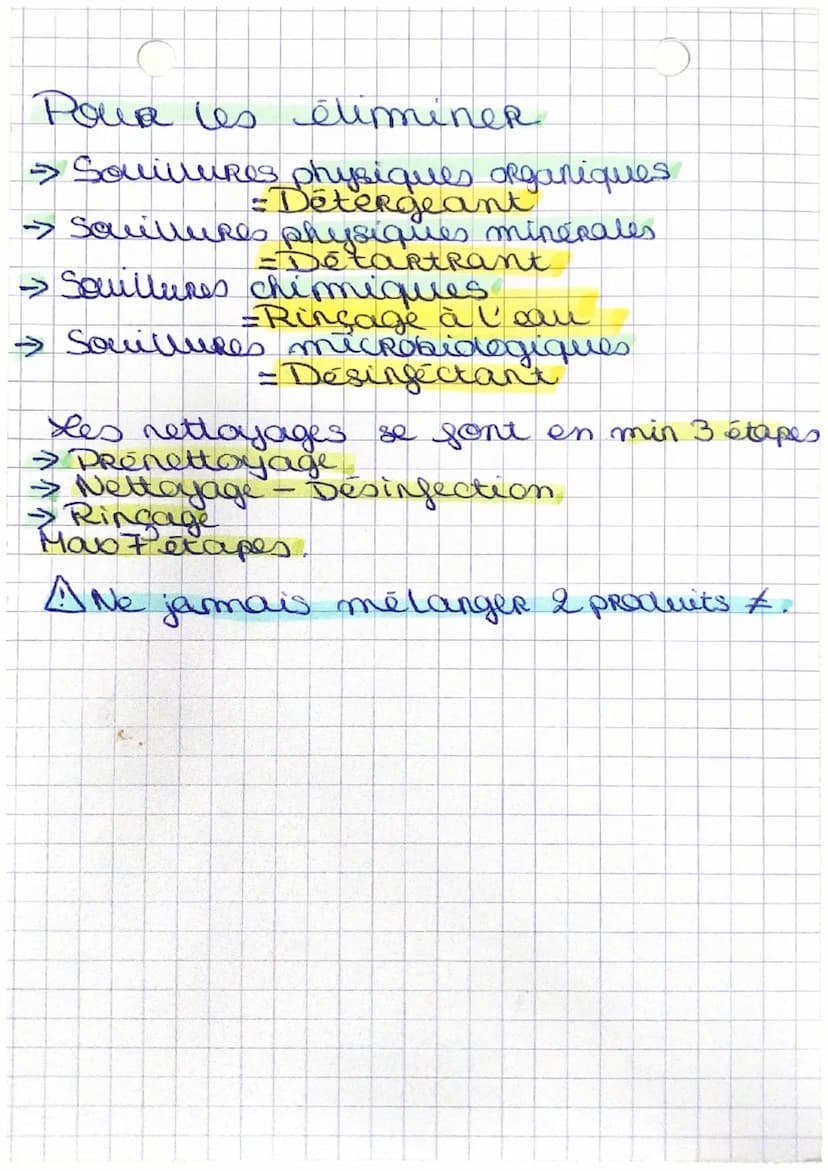 Pour les éliminer
→ Souillures physiques organiques
= Détergeant
→ Souillures physiques minérales
= Détartrant
→ Souillures chimiques
= Rinçage à l'eau
→ Souillures microbiologiques
= Désinfectant
Les nettoyages se font en min 3 étapes
→ Prénettoyage
→ Nettoyage - Désinfection
→ Rinçage
Max 7 étapes.
⚠ Ne jamais mélanger 2 produits ≠.